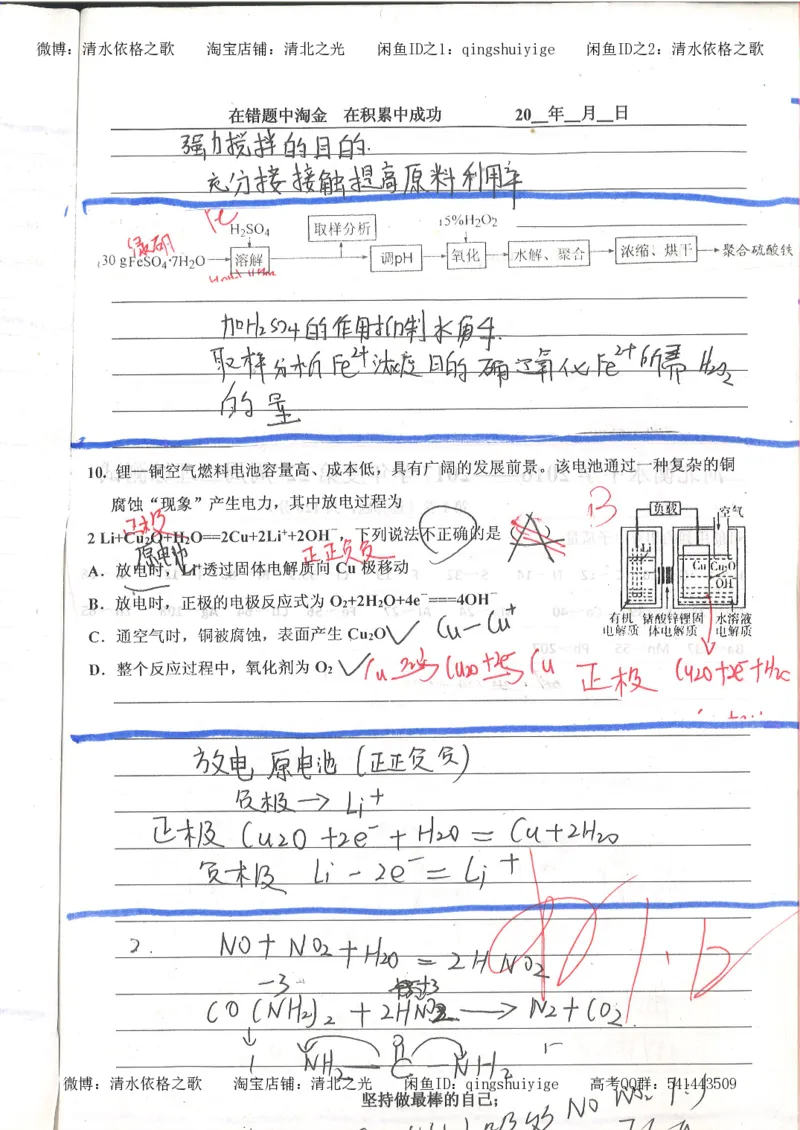 微博：清水依格之歌 淘宝店铺：清北之光 闲鱼ID之1：qingshuiyige 闲鱼ID之2：清水依格之歌
在错题中淘金 在积累中成功 20__年__月__日
强力搅拌的目的.
充分接接触提高原料利用率
H₂SO₄ 取样分析 15%H₂O₂
绿矾
30 gFeSO₄·7H₂O 溶解 调pH 氧化 水解、聚合 浓缩、烘干 聚合硫酸铁
加H₂SO₄的作用抑制水解.
取样分析Fe²⁺浓度目的 确定氧化Fe²⁺所需 H₂O₂
的量
10. 锂—铜空气燃料电池容量高、成本低，具有广阔的发展前景。该电池通过一种复杂的铜
腐蚀“现象”产生电力，其中放电过程为
正极
2 Li+Cu₂O+H₂O==2Cu+2Li⁺+2OH⁻，下列说法不正确的是（ ）
B
原电池
正正负负
A．放电时，Li⁺透过固体电解质向 Cu 极移动
B．放电时，正极的电极反应式为 O₂+2H₂O+4e⁻===4OH⁻
C．通空气时，铜被腐蚀，表面产生 Cu₂O
Cu－Cu⁺
D．整个反应过程中，氧化剂为 O₂
负载 空气
Li Cu Cu₂O
OH⁻
有机 锗酸锌锂固 水溶液
电解质 体电解质 电解质
正极 Cu₂O+2e⁻+H₂O
放电 原电池（正正负负）
负极→Li⁺
正极 Cu₂O +2e⁻+H₂O = Cu+2H₂O
负极 Li－2e⁻=Li⁺
2. NO+NO₂+H₂O=2HNO₂
-3 +3
CO(NH₂)₂+2HNO₂→N₂+CO₂
NH₂—C—NH₂
微博：清水依格之歌 淘宝店铺：清北之光 闲鱼ID：qingshuiyige 高考QQ群：541443509
坚持做最棒的自己;